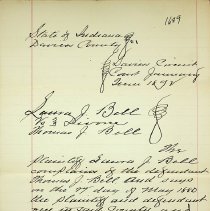 1689
State of Indiana
Daviess County ss
Daviess Circuit
Court January
Term 1892
Laura J. Bell
vs Divorce
Thomas J. Bell
The
plaintiff Laura J. Bell
complains of the defendant
Thomas J. Bell and says
on the 17 day of May 1880
the plaintiff and defendant